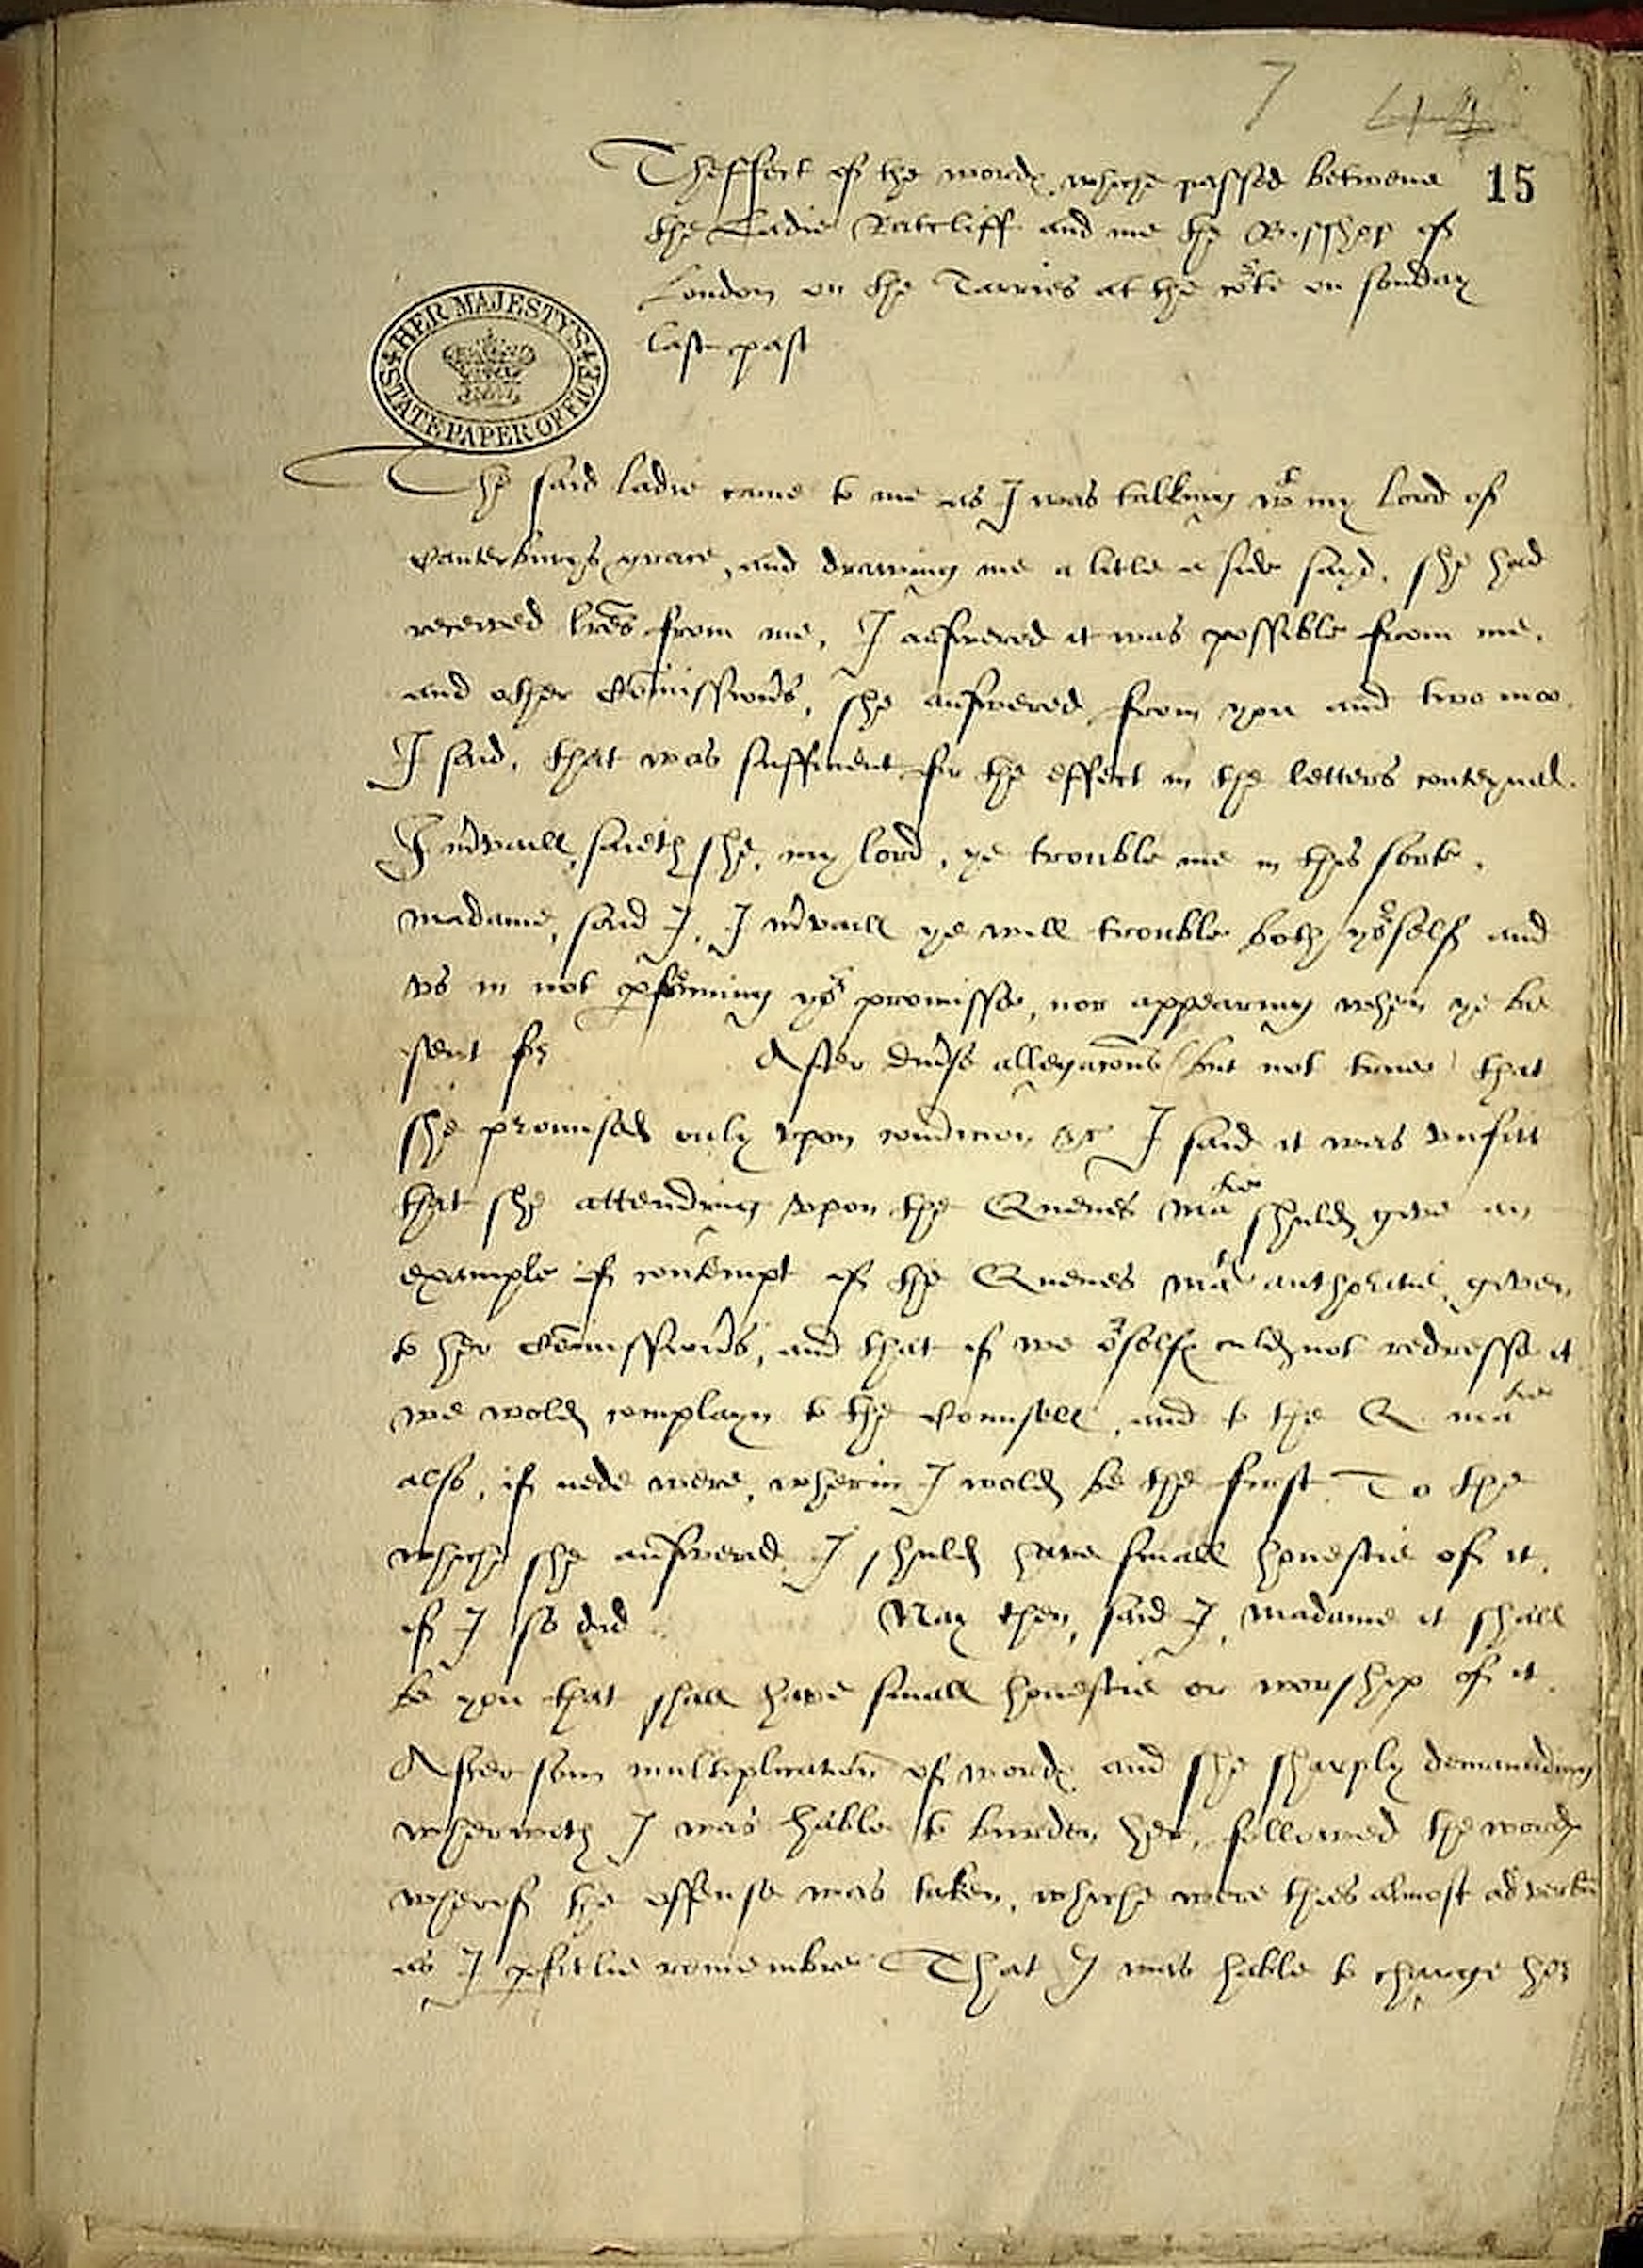 7 44
15
Theffect of the wordes whiche passed betwene
the Ladie Ratcliff and me the Bisshop of
London on the Tarries at the coʳte on sonday
last past
HER MAJESTY'S STATE PAPER OFFICE
The said ladie came to me as I was talking wᵗ my Lord of
Canterburys grace, and drawing me a litle a side sayd, she had
receved lr̃es from me, I answered it was possible from me,
and other Com̃issionʳs, she answered, from you and two moo.
I said, that was sufficient for the effect in the letters conteyned.
I mʳvaill, saieth she, my lord, ye trouble me in this sorte,
madame, said I, I mʳvaill ye will trouble both yoʳself and
vs in not pfoʳming yoʳ promisse, nor appearing when ye be
sent for After diuʳse allegacons (but not trewe) that
she promised only vpon condicion &c I said it was vnfitt
that she attending vpon the Quenes maᵗⁱᵉ shuld give an
example of contempt of the Quenes maᵗⁱᵉ authoritie, given
to her Com̃issionʳs, and that if we oʳselfes culd not redresse it
we wold complayn to the Counsell, and to the Q. maᵗⁱᵉ
also, if nede were, wherin I wold be the first. To the
whiche she answered, I shuld have small honestie of it,
if I so did. Nay then, said I, madame it shall
be you that shall have small honestie or worship of it.
After som multiplication of wordes and she sharply demaunding
wherwith I was hable to burden her, followed the wordes
wherof the offense was taken, whiche were thies almost ad verbū
as I pfitlie remembre That I was hable to charge her